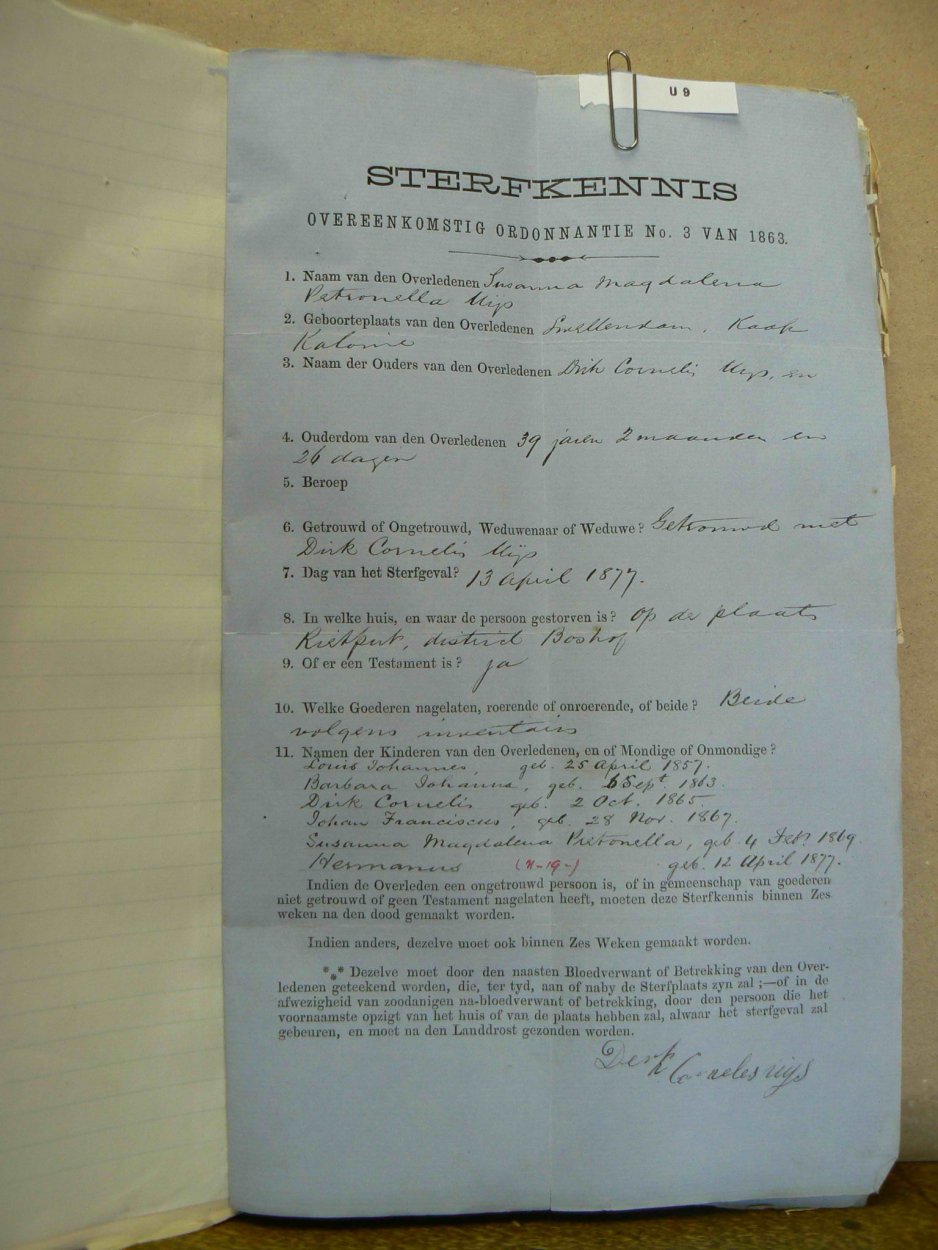 U 9
STERFKENNIS
OVEREENKOMSTIG ORDONNANTIE No. 3 VAN 1863.
1. Naam van den Overledenen Susanna Magdalena
Petronella Uijs
2. Geboorteplaats van den Overledenen Swellendam, Kaap
Kolonie
3. Naam der Ouders van den Overledenen Dirk Cornelis Uijs, en
4. Ouderdom van den Overledenen 39 jaren 2 maanden en
26 dagen
5. Beroep
6. Getrouwd of Ongetrouwd, Weduwenaar of Weduwe? Getrouwd met
Dirk Cornelis Uijs
7. Dag van het Sterfgeval? 13 April 1877.
8. In welke huis, en waar de persoon gestorven is? Op de plaats
Rietput, district Boshof
9. Of er een Testament is? ja
10. Welke Goederen nagelaten, roerende of onroerende, of beide? Beide
volgens inventaris
11. Namen der Kinderen van den Overledenen, en of Mondige of Onmondige?
Louis Johannes, geb. 25 April 1857.
Barbara Johanna, geb. 6 Sept 1863.
Dirk Cornelis geb. 2 Oct. 1865.
Johan Franciscus, geb. 28 Nov. 1867.
Susanna Magdalena Pietronella, geb. 4 Feb. 1869.
Hermanus geb. 12 April 1877.
Indien de Overleden een ongetrouwd persoon is, of in gemeenschap van goederen
niet getrouwd of geen Testament nagelaten heeft, moeten deze Sterfkennis binnen Zes
weken na den dood gemaakt worden.
Indien anders, dezelve moet ook binnen Zes Weken gemaakt worden.
*** Dezelve moet door den naasten Bloedverwant of Betrekking van den Over-
ledenen geteekend worden, die, ter tyd, aan of naby de Sterfplaats zyn zal ;—of in de
afwezigheid van zoodanigen na-bloedverwant of betrekking, door den persoon die het
voornaamste opzigt van het huis of van de plaats hebben zal, alwaar het sterfgeval zal
gebeuren, en moet na den Landdrost gezonden worden.
Derk Corneles uijs